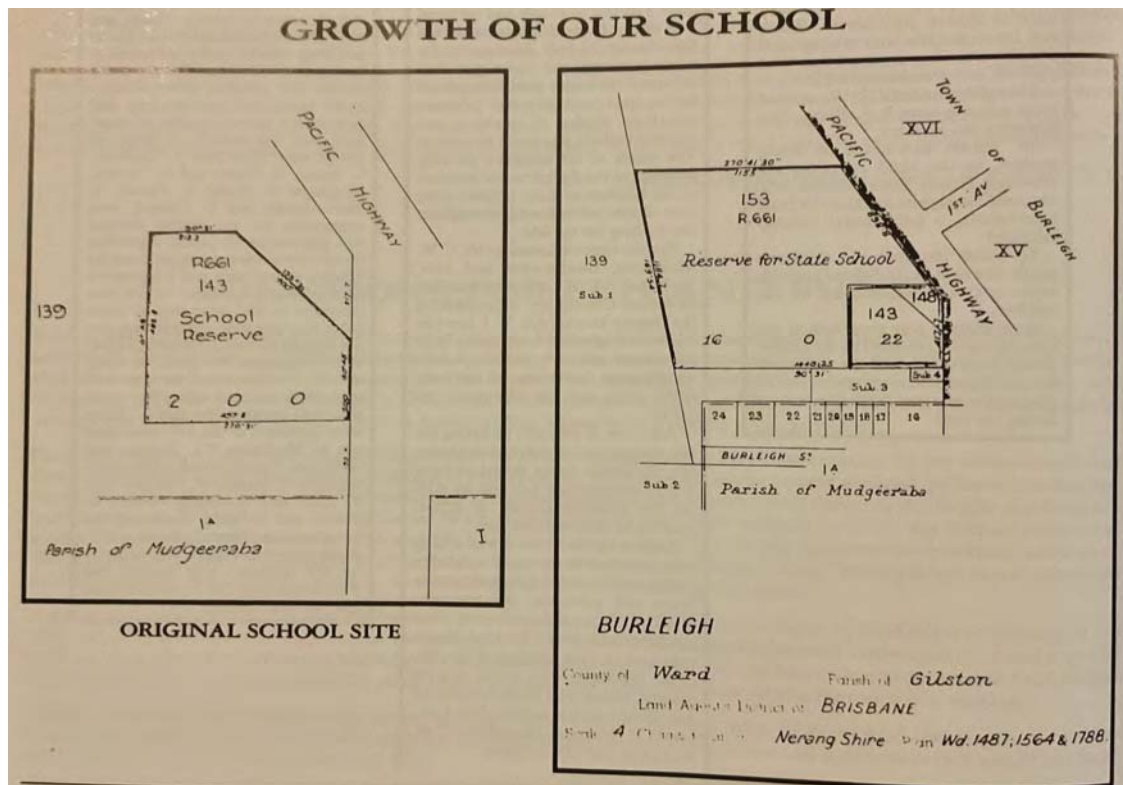 GROWTH OF OUR SCHOOL
PACIFIC
HIGHWAY
R661
143
School
Reserve
139
2 0 0
1A
Parish of Mudgeeraba
I
ORIGINAL SCHOOL SITE
TOWN
OF
BURLEIGH
XVI
XV
1ST AV
PACIFIC
HIGHWAY
270°41'30"
1155
153
R.661
Reserve for State School
139
Sub.1
148
143
16 0 22
90°31'
Sub.3
Sub 4
24 23 22 21 20 19 18 17 16
BURLEIGH ST
1A
Sub 2
Parish of Mudgeeraba
BURLEIGH
County of Ward
Parish of Gilston
Land Agents District of BRISBANE
Scale 4 Chains Nerang Shire Plan Wd.1487;1564 & 1788.